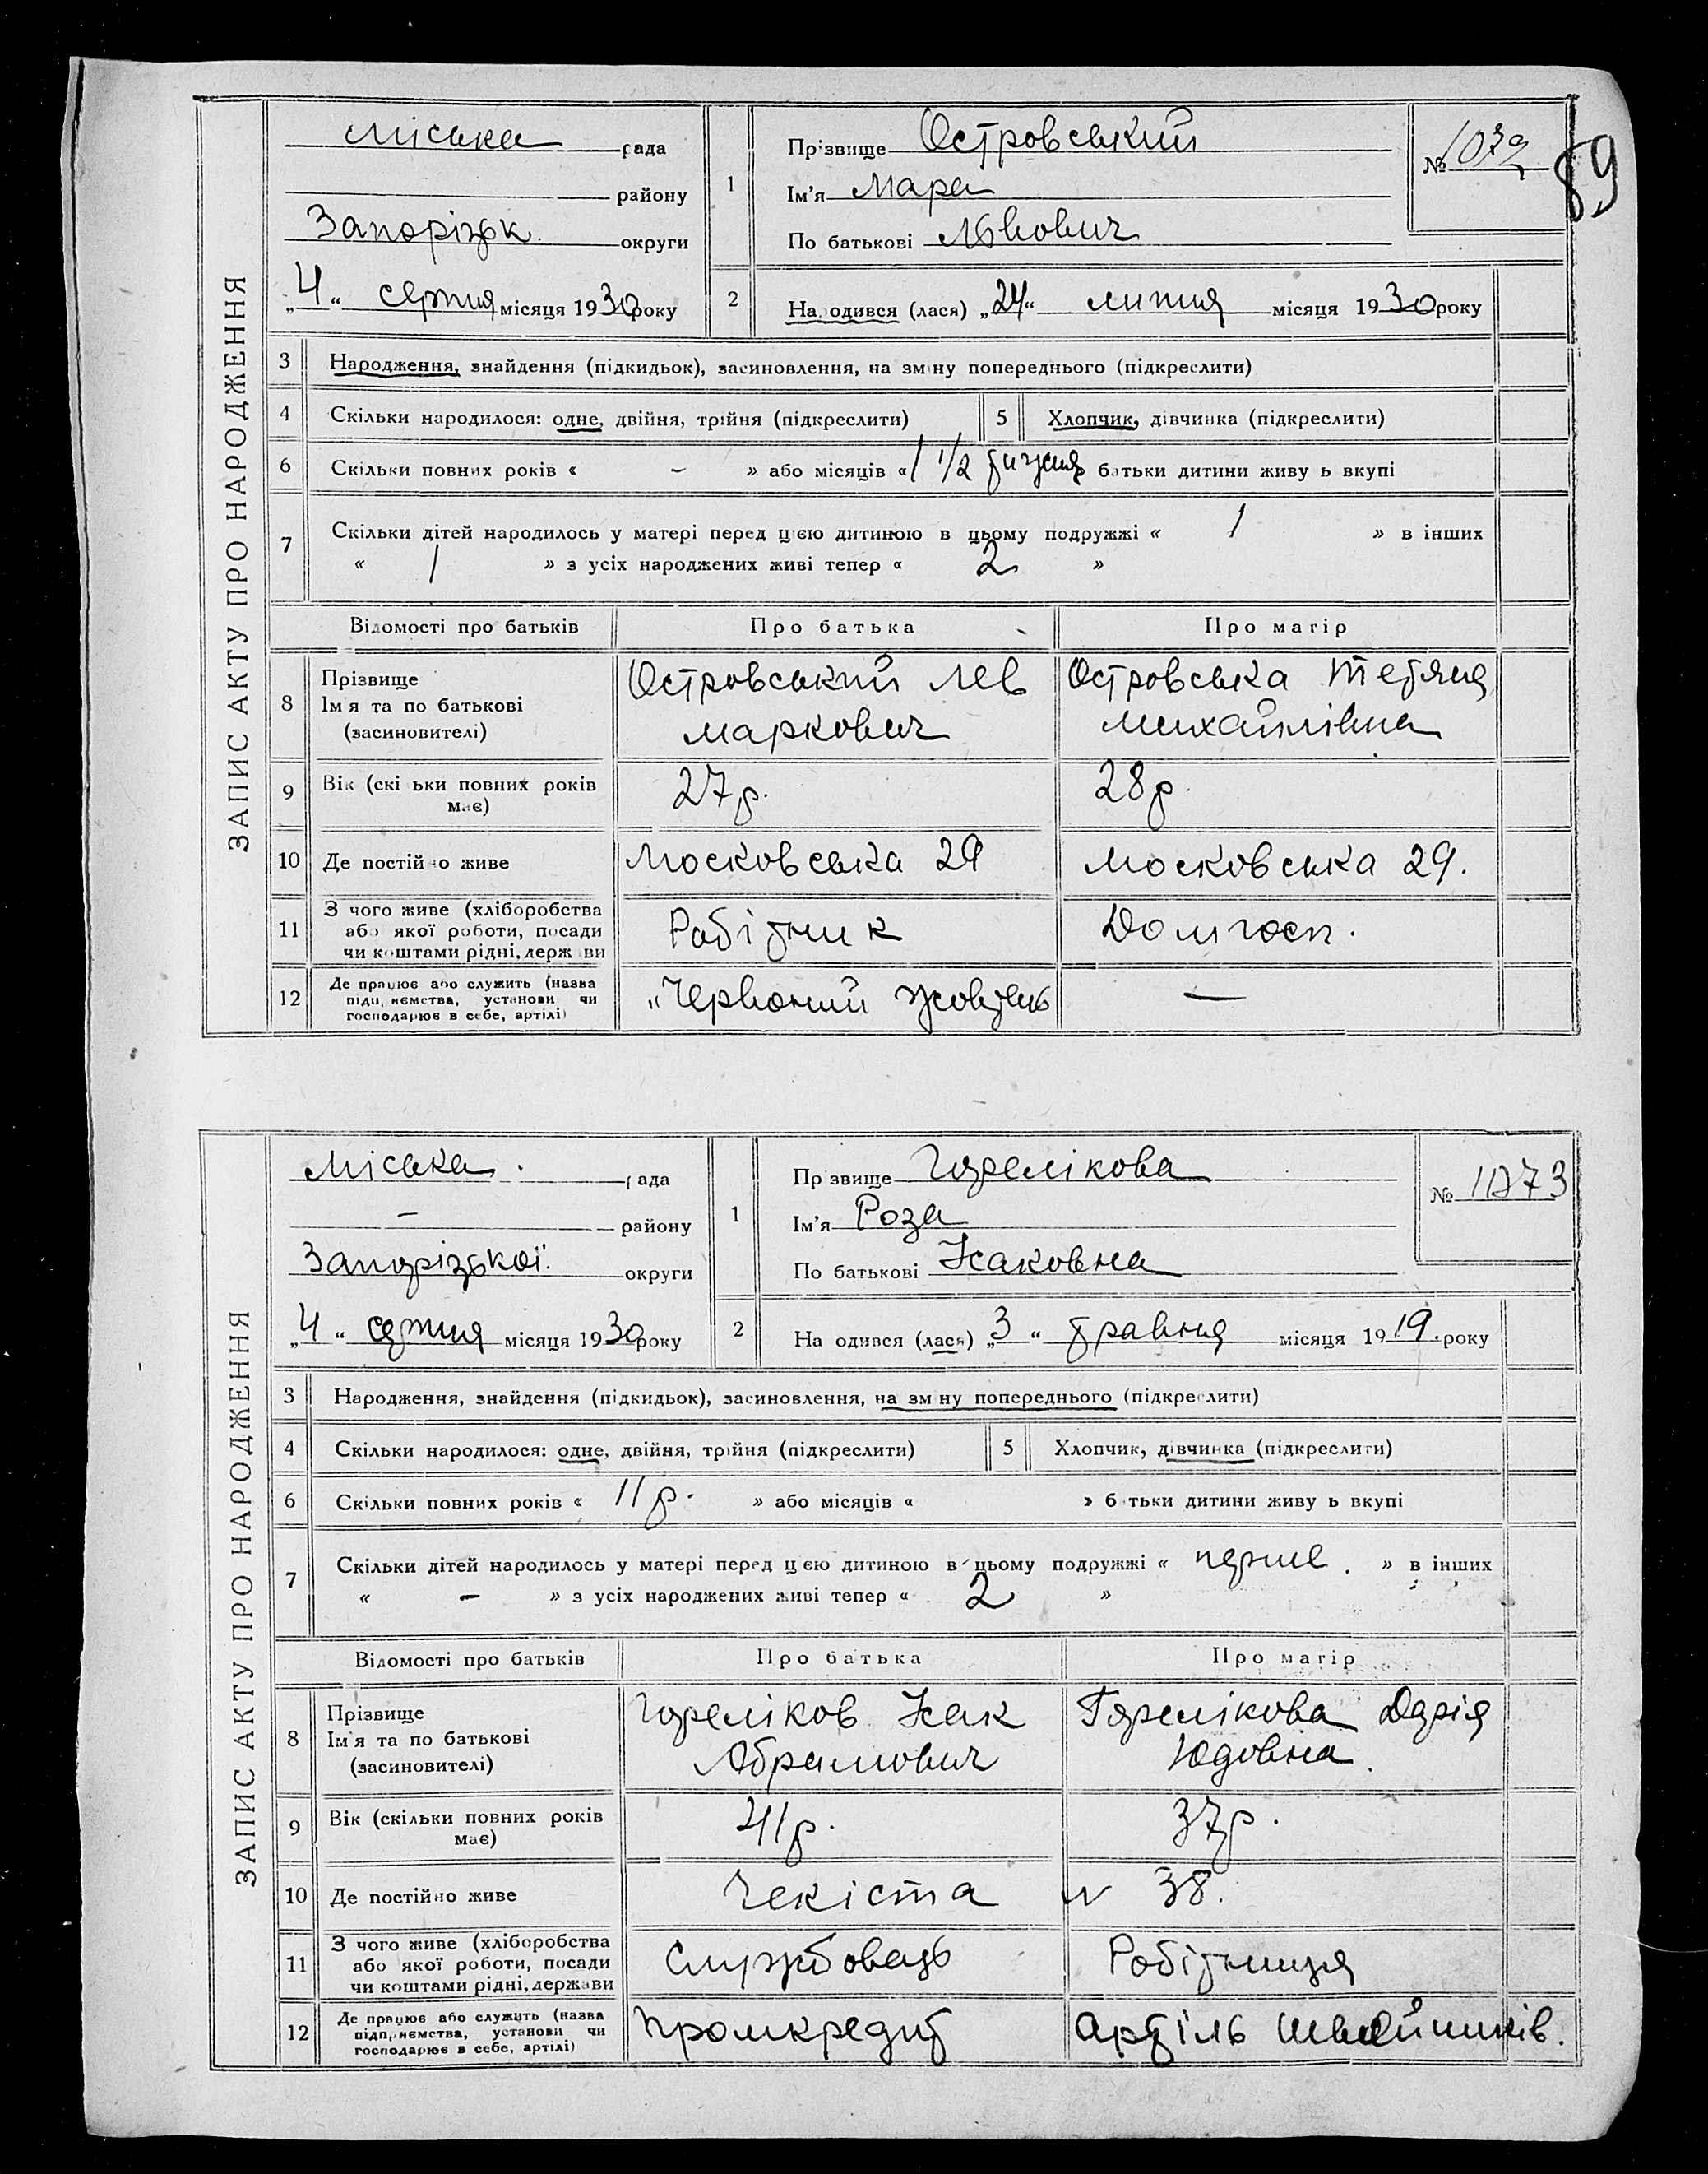 89
ЗАПИС АКТУ ПРО НАРОДЖЕННЯ
міська рада
району
Запорізьк. округи
„4“ серпня місяця 1930 року
1
Прізвище Островський
Ім'я Мара
По батькові Львович
№ 1072
2
На одився (лася) „24“ липня місяця 1930 року
3 Народження, знайдення (підкидьок), засиновлення, на зміну попереднього (підкреслити)
4 Скільки народилося: одне, двійня, трійня (підкреслити) 5 Хлопчик, дівчинка (підкреслити)
6 Скільки повних років « – » або місяців « 1 1/2 тижня батьки дитини живу ь вкупі
7 Скільки дітей народилось у матері перед цією дитиною в цьому подружжі « 1 » в інших
« 1 » з усіх народжених живі тепер « 2 »
Відомості про батьків Про батька Про матір
8 Прізвище
Ім'я та по батькові
(засиновителі)
Островський Лев
Маркович
Островська Тетяна
Михайлівна
9 Вік (скі ьки повних років
має)
27 р.
28 р.
10 Де постійно живе Московська 29 Московська 29.
11 З чого живе (хліборобства
або якої роботи, посади
чи коштами рідні, держ ви
Робітник
Домгосп.
12 Де працює або служить (назва
підп, иємства, установи чи
господарює в себе, артілі)
„Червоний Жовтень
—
ЗАПИС АКТУ ПРО НАРОДЖЕННЯ
міська. рада
– району
Запорізької. округи
„4“ серпня місяця 1930 року
1
Пр звище Горелікова
Ім'я Роза
По батькові Ісаковна
№ 1073
2
На одився (лася) „3“ травня місяця 1919. року
3 Народження, знайдення (підкидьок), засиновлення, на зм ну попереднього (підкреслити)
4 Скільки народилося: одне, двійня, трійня (підкреслити) 5 Хлопчик, дівчинка (підкреслити)
6 Скільки повних років « 11 р. » або місяців « » б тьки дитини живу ь вкупі
7 Скільки дітей народилось у матері перед цією дитиною в цьому подружжі « перше. » в інших
« – » з усіх народжених живі тепер « 2 »
Відомості про батьків Про батька Про матір
8 Прізвище
Ім'я та по батькові
(засиновителі)
Гореліков Ісак
Абрамович
Горелікова Дарія
Юдовна.
9 Вік (скільки повних років
має)
41 р.
37 р.
10 Де постійно живе Чекіста № 38.
11 З чого живе (хліборобства
або якої роботи, посади
чи коштами рідні, держави
Службовець
Робітниця
12 Де працює або служить (назва
підприємства, установи чи
господарює в себе, артілі)
Промкредит
Артіль Швейників.